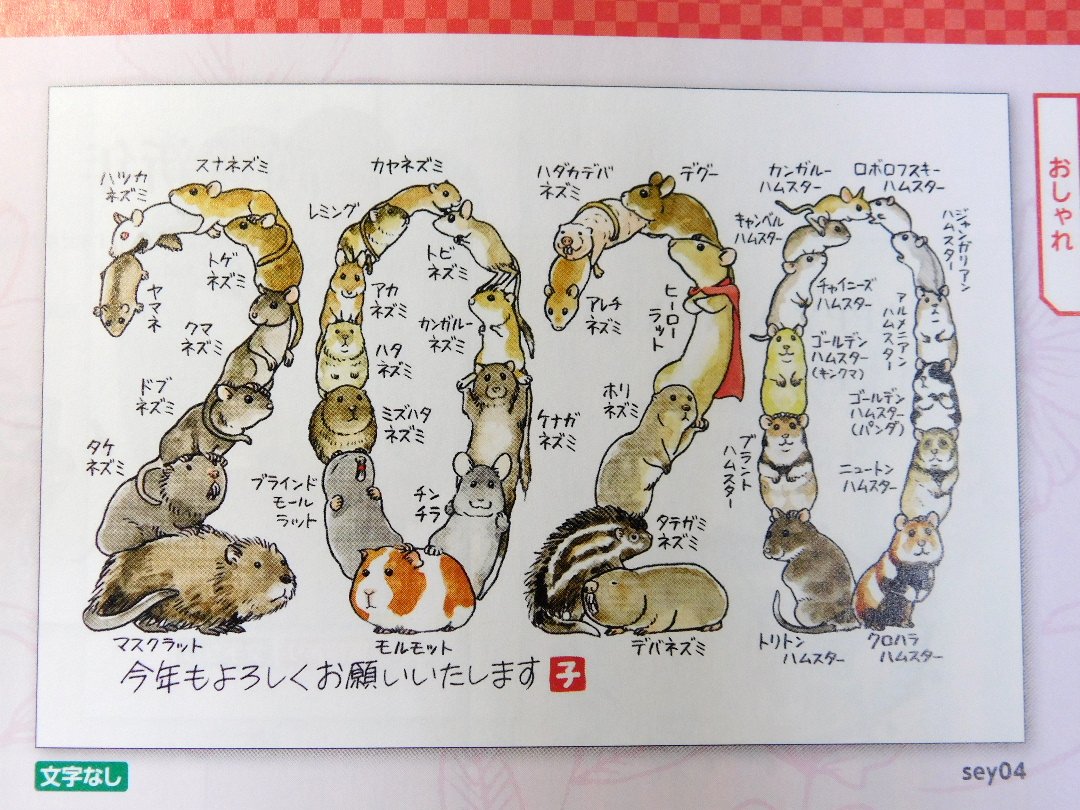 おしゃれ
ハツカ
ネズミ
スナネズミ
トゲ
ネズミ
ヤマネ
クマ
ネズミ
ドブ
ネズミ
タケ
ネズミ
マスクラット
カヤネズミ
レミング
トビ
ネズミ
アカ
ネズミ
カンガルー
ネズミ
ハタ
ネズミ
ミズハタ
ネズミ
ケナガ
ネズミ
ブラインド
モール
ラット
チン
チラ
モルモット
ハダカデバ
ネズミ
デグー
アレチ
ネズミ
ヒーロー
ラット
ホリ
ネズミ
タテガミ
ネズミ
デバネズミ
カンガルー
ハムスター
ロボロフスキー
ハムスター
キャンベル
ハムスター
ジャンガリアン
ハムスター
チャイニーズ
ハムスター
アルメニアン
ハムスター
ゴールデン
ハムスター
(キンクマ)
ゴールデン
ハムスター
(パンダ)
ブラント
ハムスター
ニュートン
ハムスター
トリトン
ハムスター
クロハラ
ハムスター
今年もよろしくお願いいたします 子
文字なし
sey04